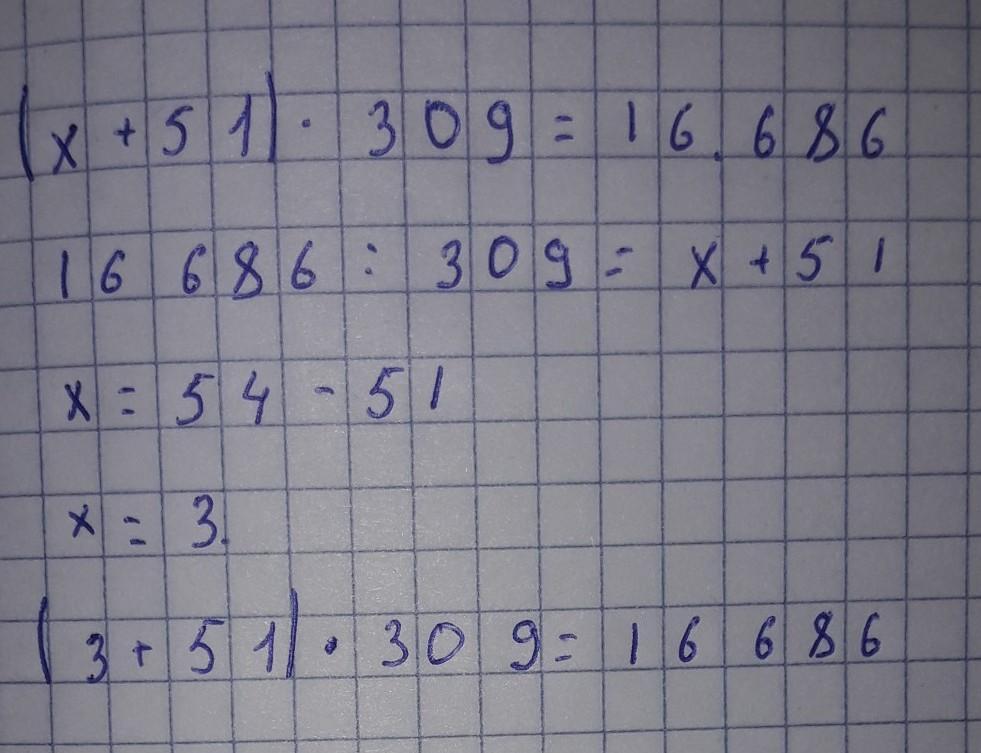 (x + 51) · 309 = 16.686
16 686 : 309 = x + 51
x = 54 - 51
x = 3.
(3 + 51) · 309 = 16 686